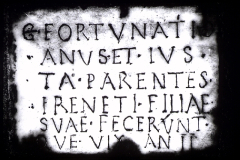 G·FORTVNATI
ANVS·ET·IVS
TA·PARENTES
IRENETI·FILIAE
SVAE·FECERVNT
VIX·AN·II